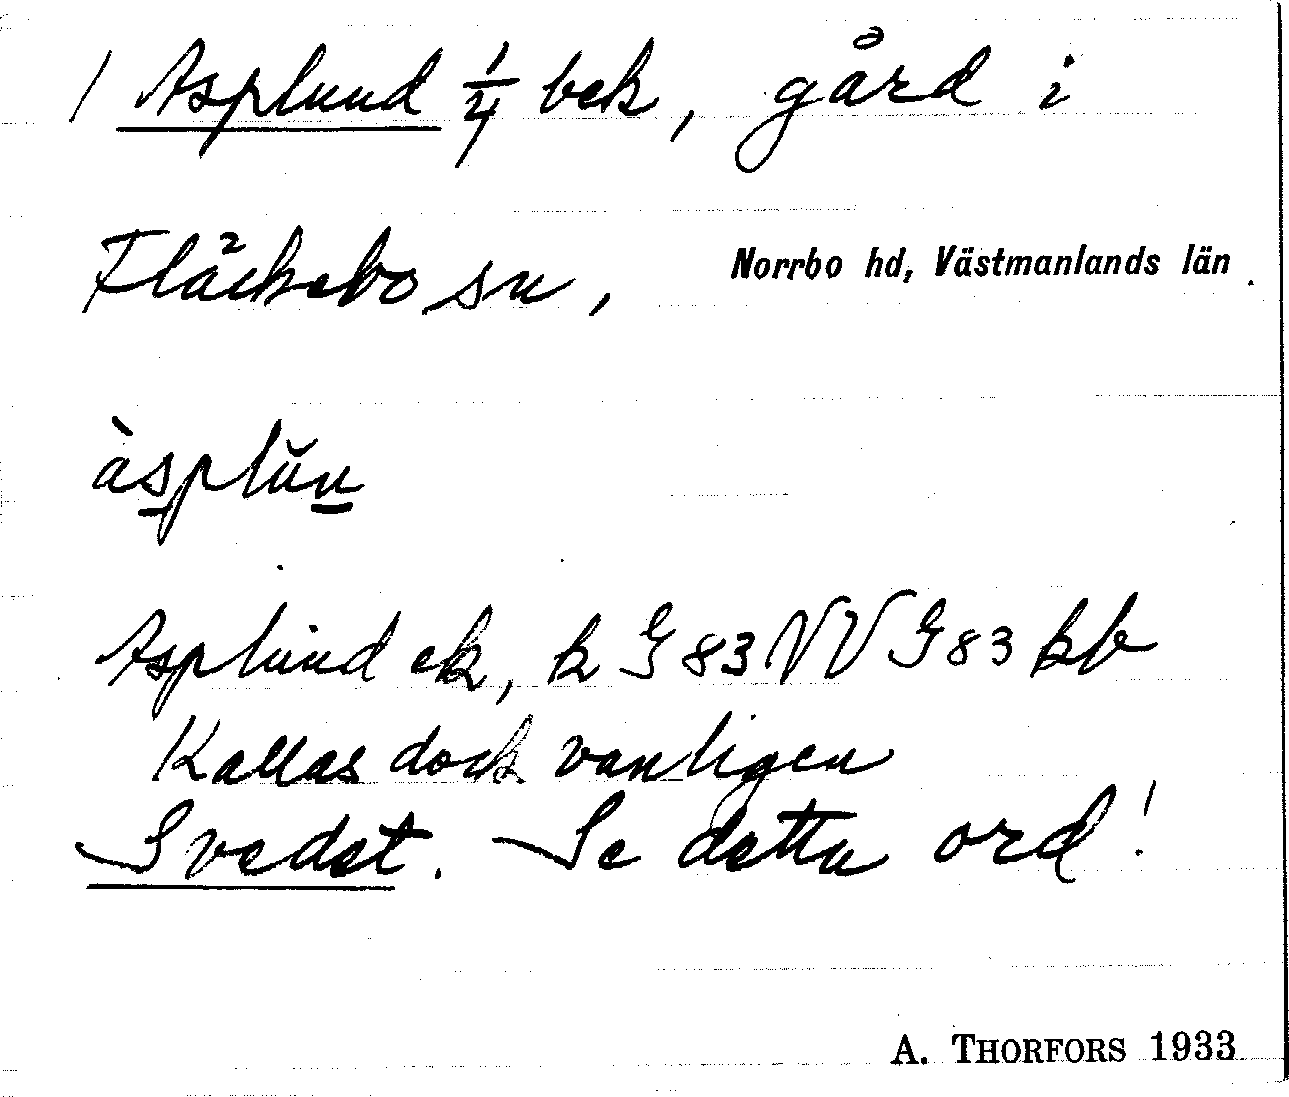 1 Asplund 1/4 bek, gård i
Fläckebo sn, Norrbo hd, Västmanlands län.
àsplŭn
Asplund ek, k G 83 NV G 83 kb
Kallas dock vanligen
Svedet. Se detta ord!
A. THORFORS 1933